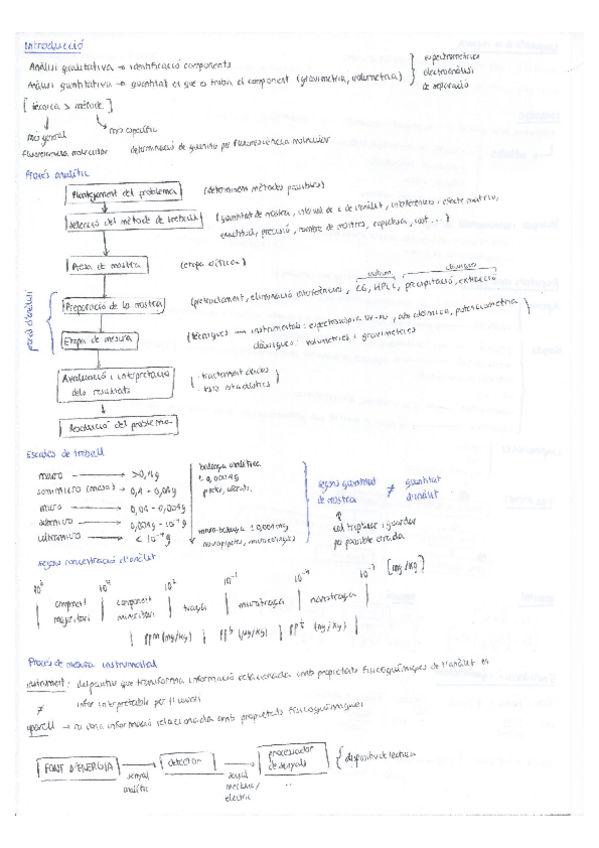 Introducció
Anàlisi qualitativa → identificació components
Anàlisi quantitativa → quantitat es que es troba el component (gravimetria, volumetria) } espectrometries
electroanàlisi
de separació
[ tècnica > mètode ]
més general
més específic
Fluorescència molecular
determinació de quinina per fluorescència molecular
Procés analític
Plantejament del problema (determinem mètodes possibles)
Selecció del mètode de treball (quantitat de mostra, interval de c de l'anàlit, interferències i efecte matriu,
exactitud, precisió, nombre de mostres, cost ...)
Presa de mostra (etapa crítica)
clàssiques
Preparació de la mostra (pretractament, eliminació interferències, CG, HPLC, precipitació, extracció
procés d'anàlisi
Etapa de mesura (tècniques → instrumentals: espectroscòpia UV-vis, abs atòmica, potenciometria
clàssiques: volumetries i gravimetries
Avaluació i interpretació dels resultats
· tractament dades
· tests estadístics
Resolució del problema
Escales de treball
macro → >0,1g
semimicro (meso) → 0,1 - 0,01g
micro → 0,01 - 0,001g
→ 0,001g - 10⁻⁷ g
ultramicro → < 10⁻⁷ g
balança analítica
± 0,0001g
± 0,001mg
segons quantitat de mostra ≠ quantitat d'anàlit
segons concentració d'anàlit
10² 10⁻¹ 10⁻⁴ 10⁻⁷ [mg/kg]
component majoritari | component minoritari | traça | microtraça | nanotraça
ppm (mg/kg) ppb (µg/kg) ppt (ng/kg)
Procés de mesura instrumental
instrument: dispositiu que transforma informació relacionada amb propietats fisicoquímiques de l'anàlit en
infor interpretable per l'usuari
≠
aparell → no dona informació relacionada amb propietats fisicoquímiques
FONT D'ENERGIA → detector → processador de senyals { dispositiu de lectura
senyal analític
senyal mecànic/elèctric